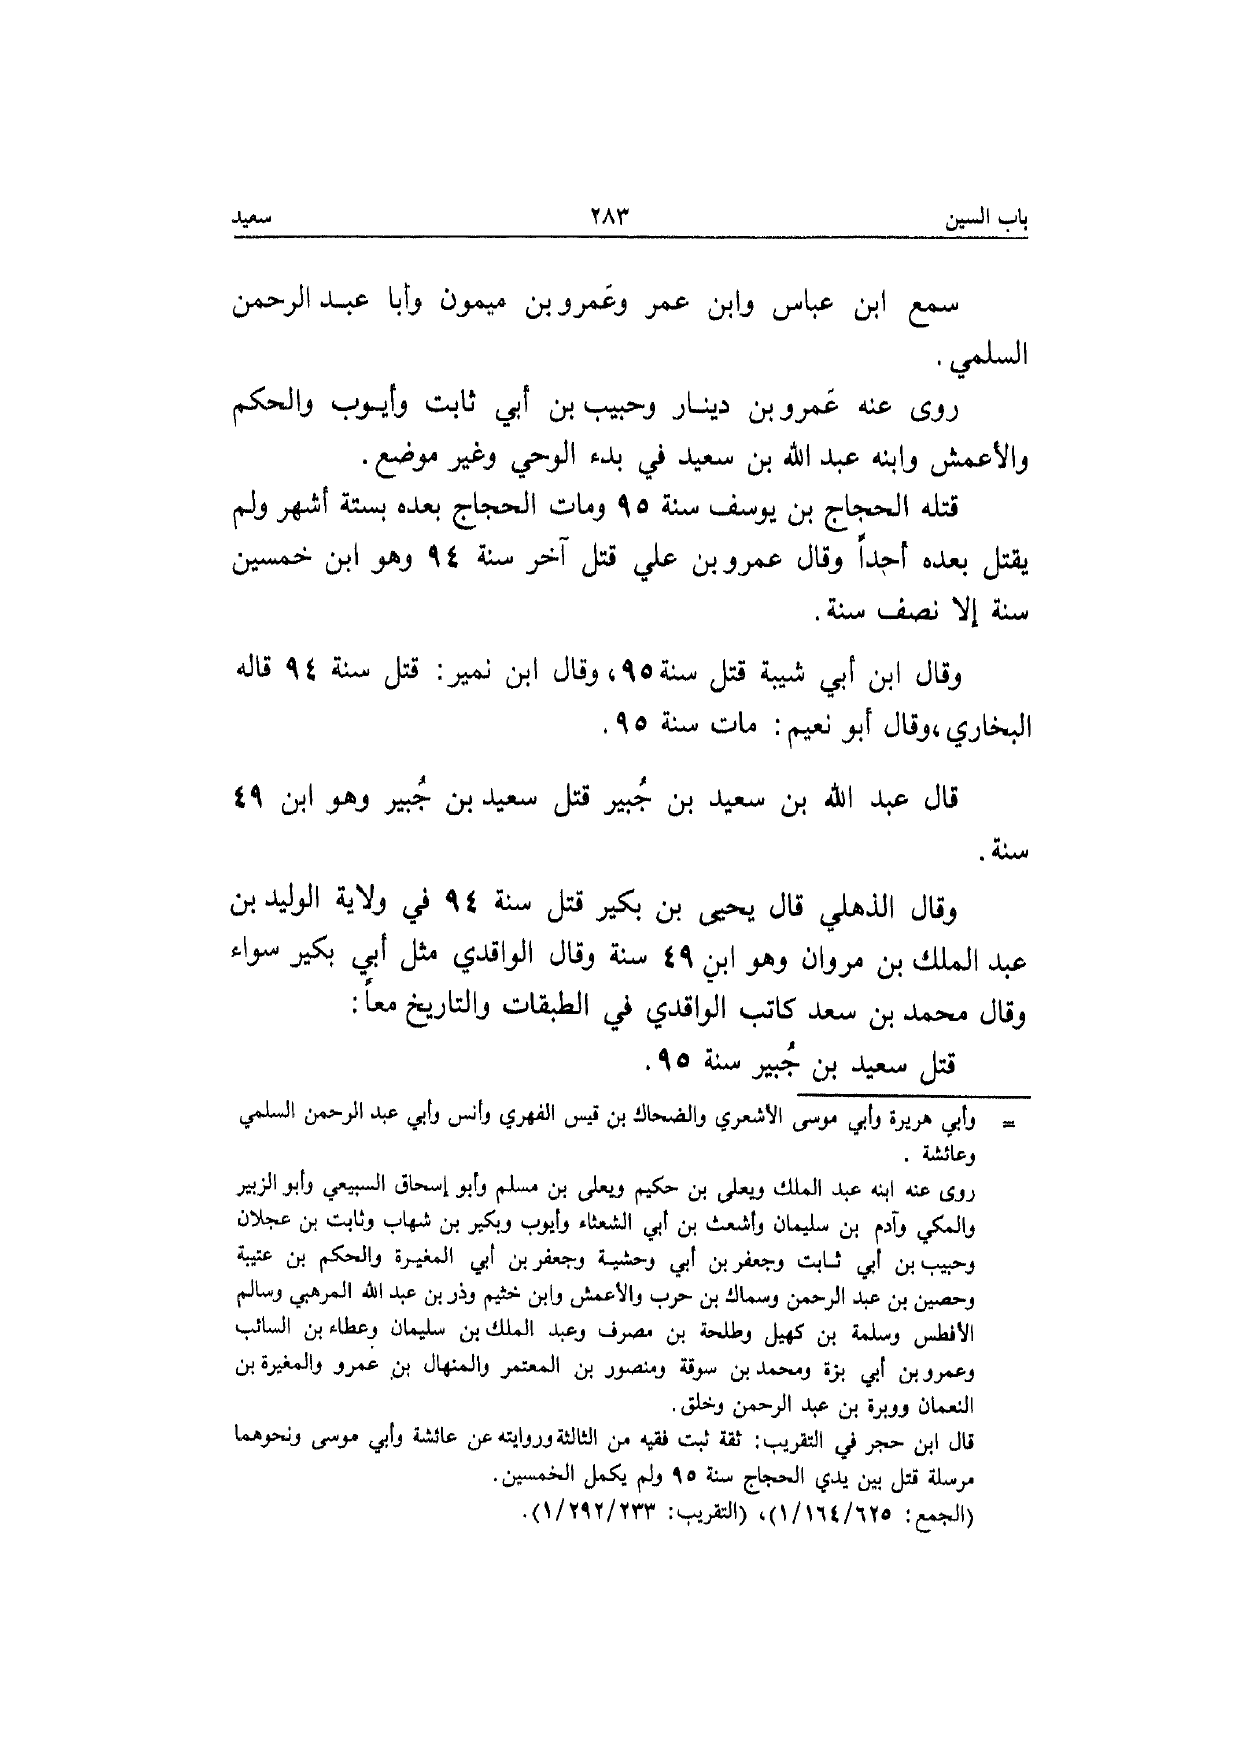 باب السين ٢٨٣ سعيد
سمع ابن عباس وابن عمر وعَمرو بن ميمون وأبا عبد الرحمن
السلمي.
روى عنه عَمرو بن دينار وحبيب بن أبي ثابت وأيوب والحكم
والأعمش وابنه عبد الله بن سعيد في بدء الوحي وغير موضع.
قتله الحجاج بن يوسف سنة ٩٥ ومات الحجاج بعده بستة أشهر ولم
يقتل بعده أحداً وقال عمرو بن علي قتل آخر سنة ٩٤ وهو ابن خمسين
سنة إلا نصف سنة.
وقال ابن أبي شيبة قتل سنة ٩٥، وقال ابن نمير: قتل سنة ٩٤ قاله
البخاري، وقال أبو نعيم: مات سنة ٩٥.
قال عبد الله بن سعيد بن جُبير قتل سعيد بن جُبير وهو ابن ٤٩
سنة.
وقال الذهلي قال يحيى بن بكير قتل سنة ٩٤ في ولاية الوليد بن
عبد الملك بن مروان وهو ابن ٤٩ سنة وقال الواقدي مثل أبي بكير سواء
وقال محمد بن سعد كاتب الواقدي في الطبقات والتاريخ معاً:
قتل سعيد بن جُبير سنة ٩٥.
= وأبي هريرة وأبي موسى الأشعري والضحاك بن قيس الفهري وأنس وأبي عبد الرحمن السلمي
وعائشة.
روى عنه ابنه عبد الملك ويعلى بن حكيم ويعلى بن مسلم وأبو إسحاق السبيعي وأبو الزبير
والمكي وآدم بن سليمان وأشعث بن أبي الشعثاء وأيوب وبكير بن شهاب وثابت بن عجلان
وحبيب بن أبي ثابت وجعفر بن أبي وحشية وجعفر بن أبي المغيرة والحكم بن عتيبة
وحصين بن عبد الرحمن وسماك بن حرب والأعمش وابن خثيم وذر بن عبد الله المرهبي وسالم
الأفطس وسلمة بن كهيل وطلحة بن مصرف وعبد الملك بن سليمان وعطاء بن السائب
وعمرو بن أبي بزة ومحمد بن سوقة ومنصور بن المعتمر والمنهال بن عمرو والمغيرة بن
النعمان ووبرة بن عبد الرحمن وخلق.
قال ابن حجر في التقريب: ثقة ثبت فقيه من الثالثة وروايته عن عائشة وأبي موسى ونحوهما
مرسلة قتل بين يدي الحجاج سنة ٩٥ ولم يكمل الخمسين.
(الجمع: ١/١٦٤/٦٢٥)، (التقريب: ١/٢٩٢/٢٣٣).